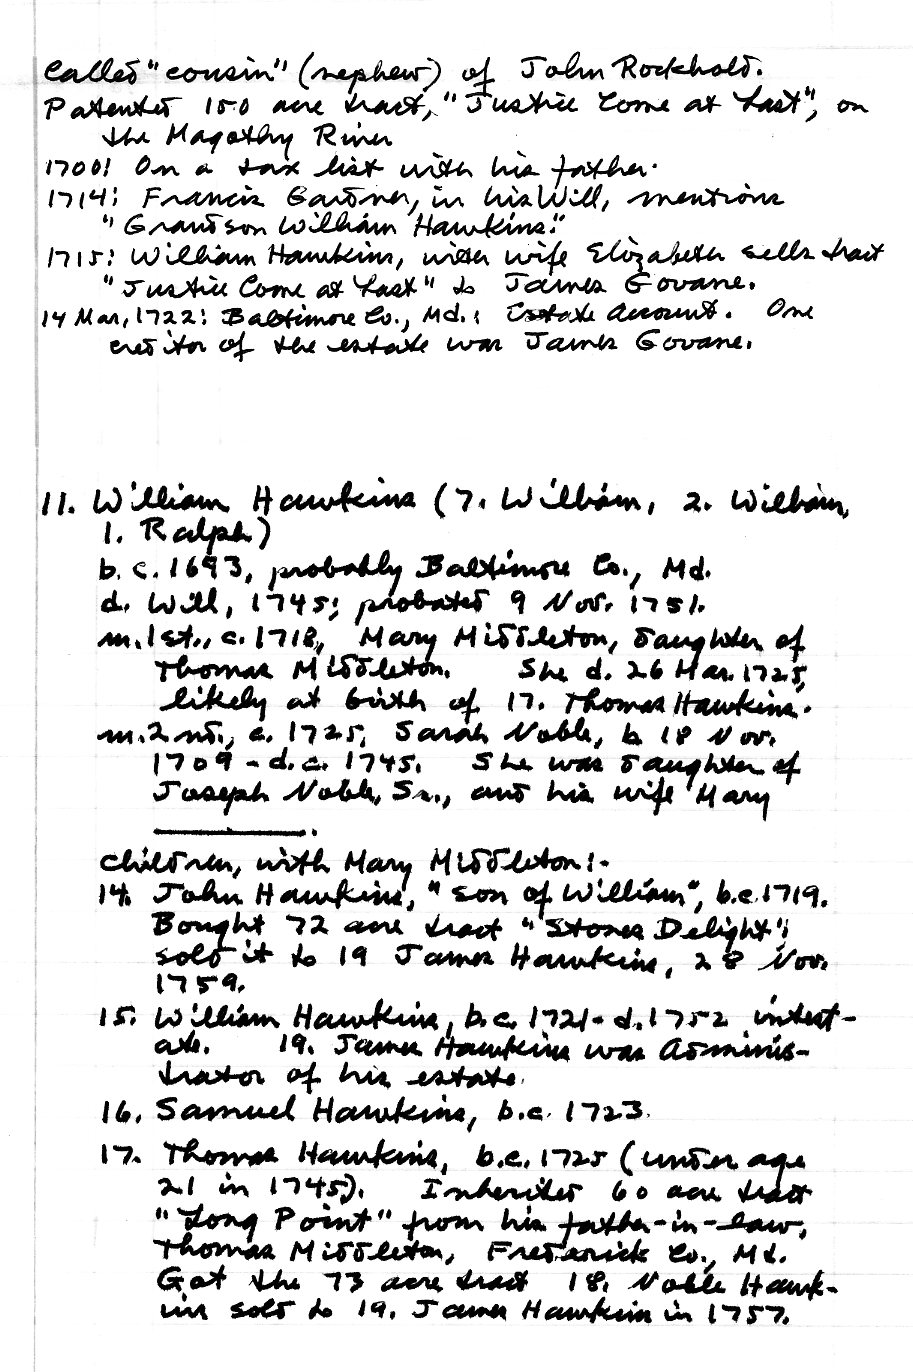 Called "cousin" (nephew) of John Rockhold.
Patented 150 acre tract, "Justice Come at Last", on
the Magothy River
1700: On a tax list with his father.
1714: Francis Gardner, in his Will, mentions
"Grandson William Hawkins."
1715: William Hawkins, with wife Elizabeth sells tract
"Justice Come at Last" to James Govane.
14 Mar, 1722: Baltimore Co., Md.: Estate Account. One
creditor of the estate was James Govane.
11. William Hawkins (7. William, 2. William,
1. Ralph)
b. c. 1693, probably Baltimore Co., Md.
d. Will, 1745; probated 9 Nov. 1751.
m. 1st., c. 1718, Mary Middleton, daughter of
Thomas Middleton. She d. 26 Mar. 1725,
likely at birth of 17. Thomas Hawkins.
m. 2nd., c. 1725, Sarah Noble, b 18 Nov.
1709 - d. c. 1745. She was daughter of
Joseph Noble, Sr., and his wife Mary
.
Children, with Mary Middleton:-
14. John Hawkins, "son of William", b.c. 1719.
Bought 72 acre tract "Stones Delight";
sold it to 19 James Hawkins, 28 Nov.
1759.
15. William Hawkins, b.c. 1721-d. 1752 intest-
ate. 19. James Hawkins was Adminis-
trator of his estate.
16. Samuel Hawkins, b.c. 1723.
17. Thomas Hawkins, b.c. 1725 (under age
21 in 1745). Inherited 60 acre tract
"Long Point" from his father-in-law,
Thomas Middleton, Frederick Co., Md.
Got the 73 acre tract 18. Noble Hawk-
ins sold to 19. James Hawkins in 1757.